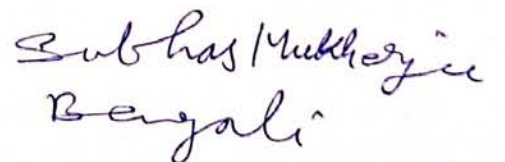 Subhas Mukherjee
Bengali